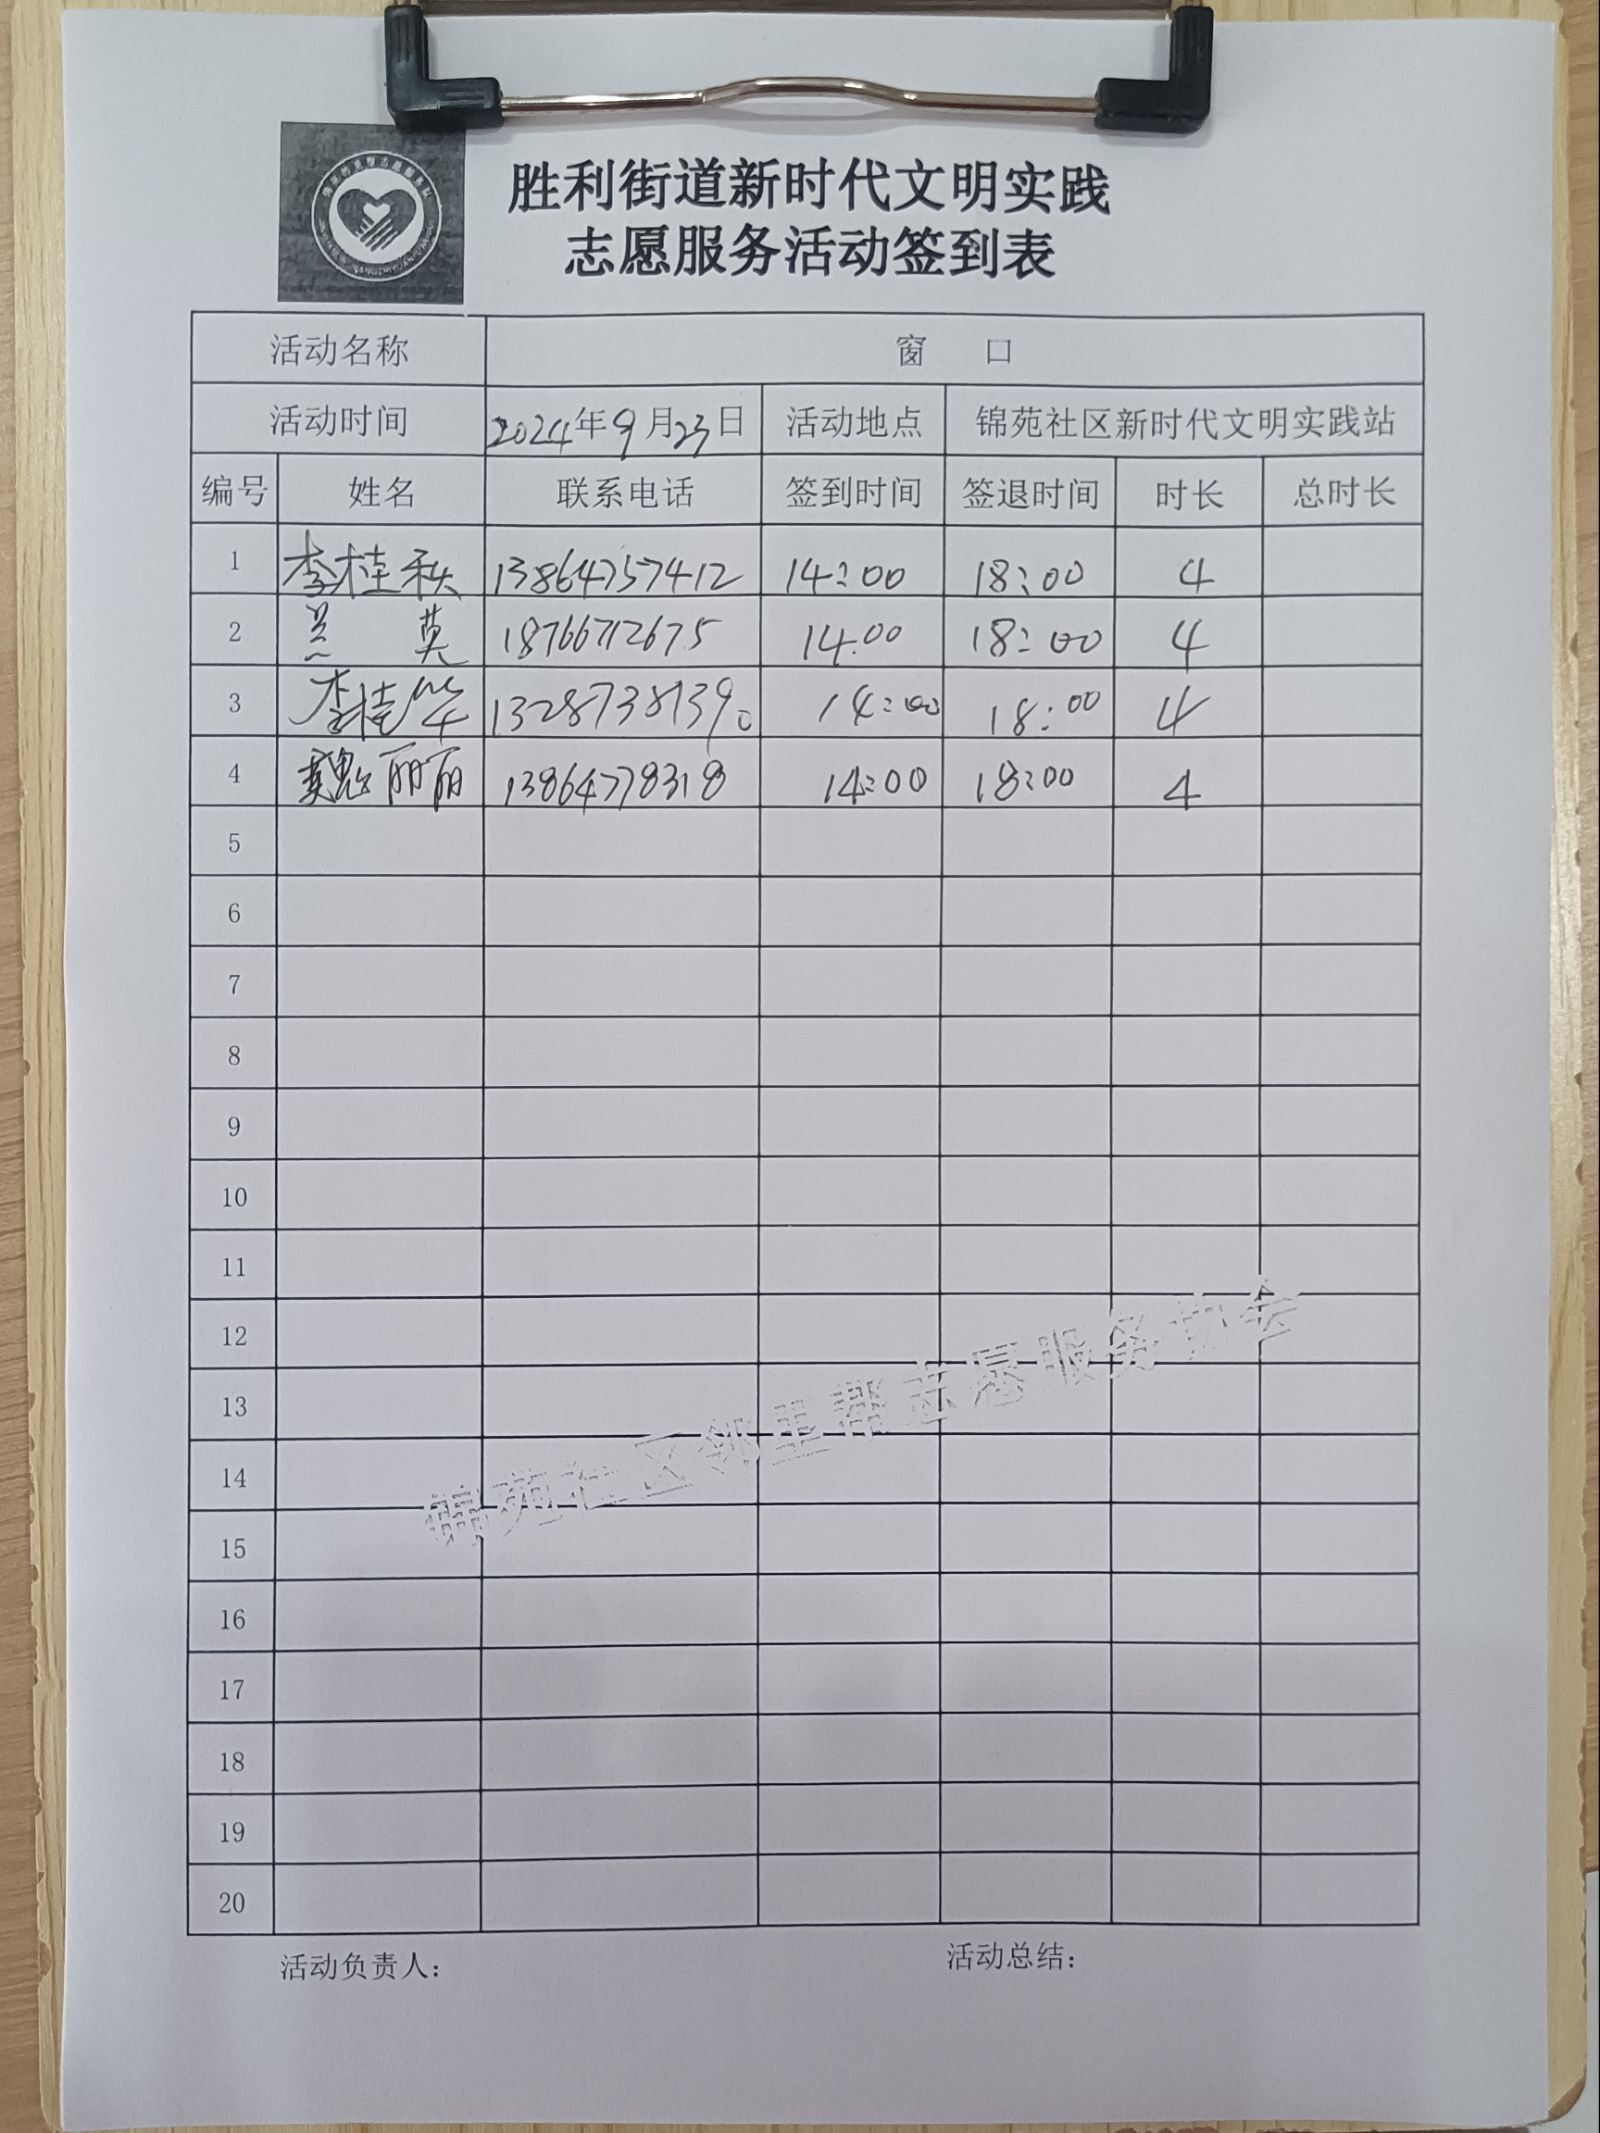 胜利街道新时代文明实践
志愿服务活动签到表
活动名称 窗 口
活动时间 2024年9月23日 活动地点 锦苑社区新时代文明实践站
编号 姓名 联系电话 签到时间 签退时间 时长 总时长
1 李桂秋 13864757412 14:00 18:00 4
2 兰 英 18766712675 14:00 18:00 4
3 李桂华 13287381390 14:00 18:00 4
4 魏丽丽 13864778318 14:00 18:00 4
5
6
7
8
9
10
11
12
13
14
15
16
17
18
19
20
锦苑社区邻里帮志愿服务协会
活动负责人：
活动总结：